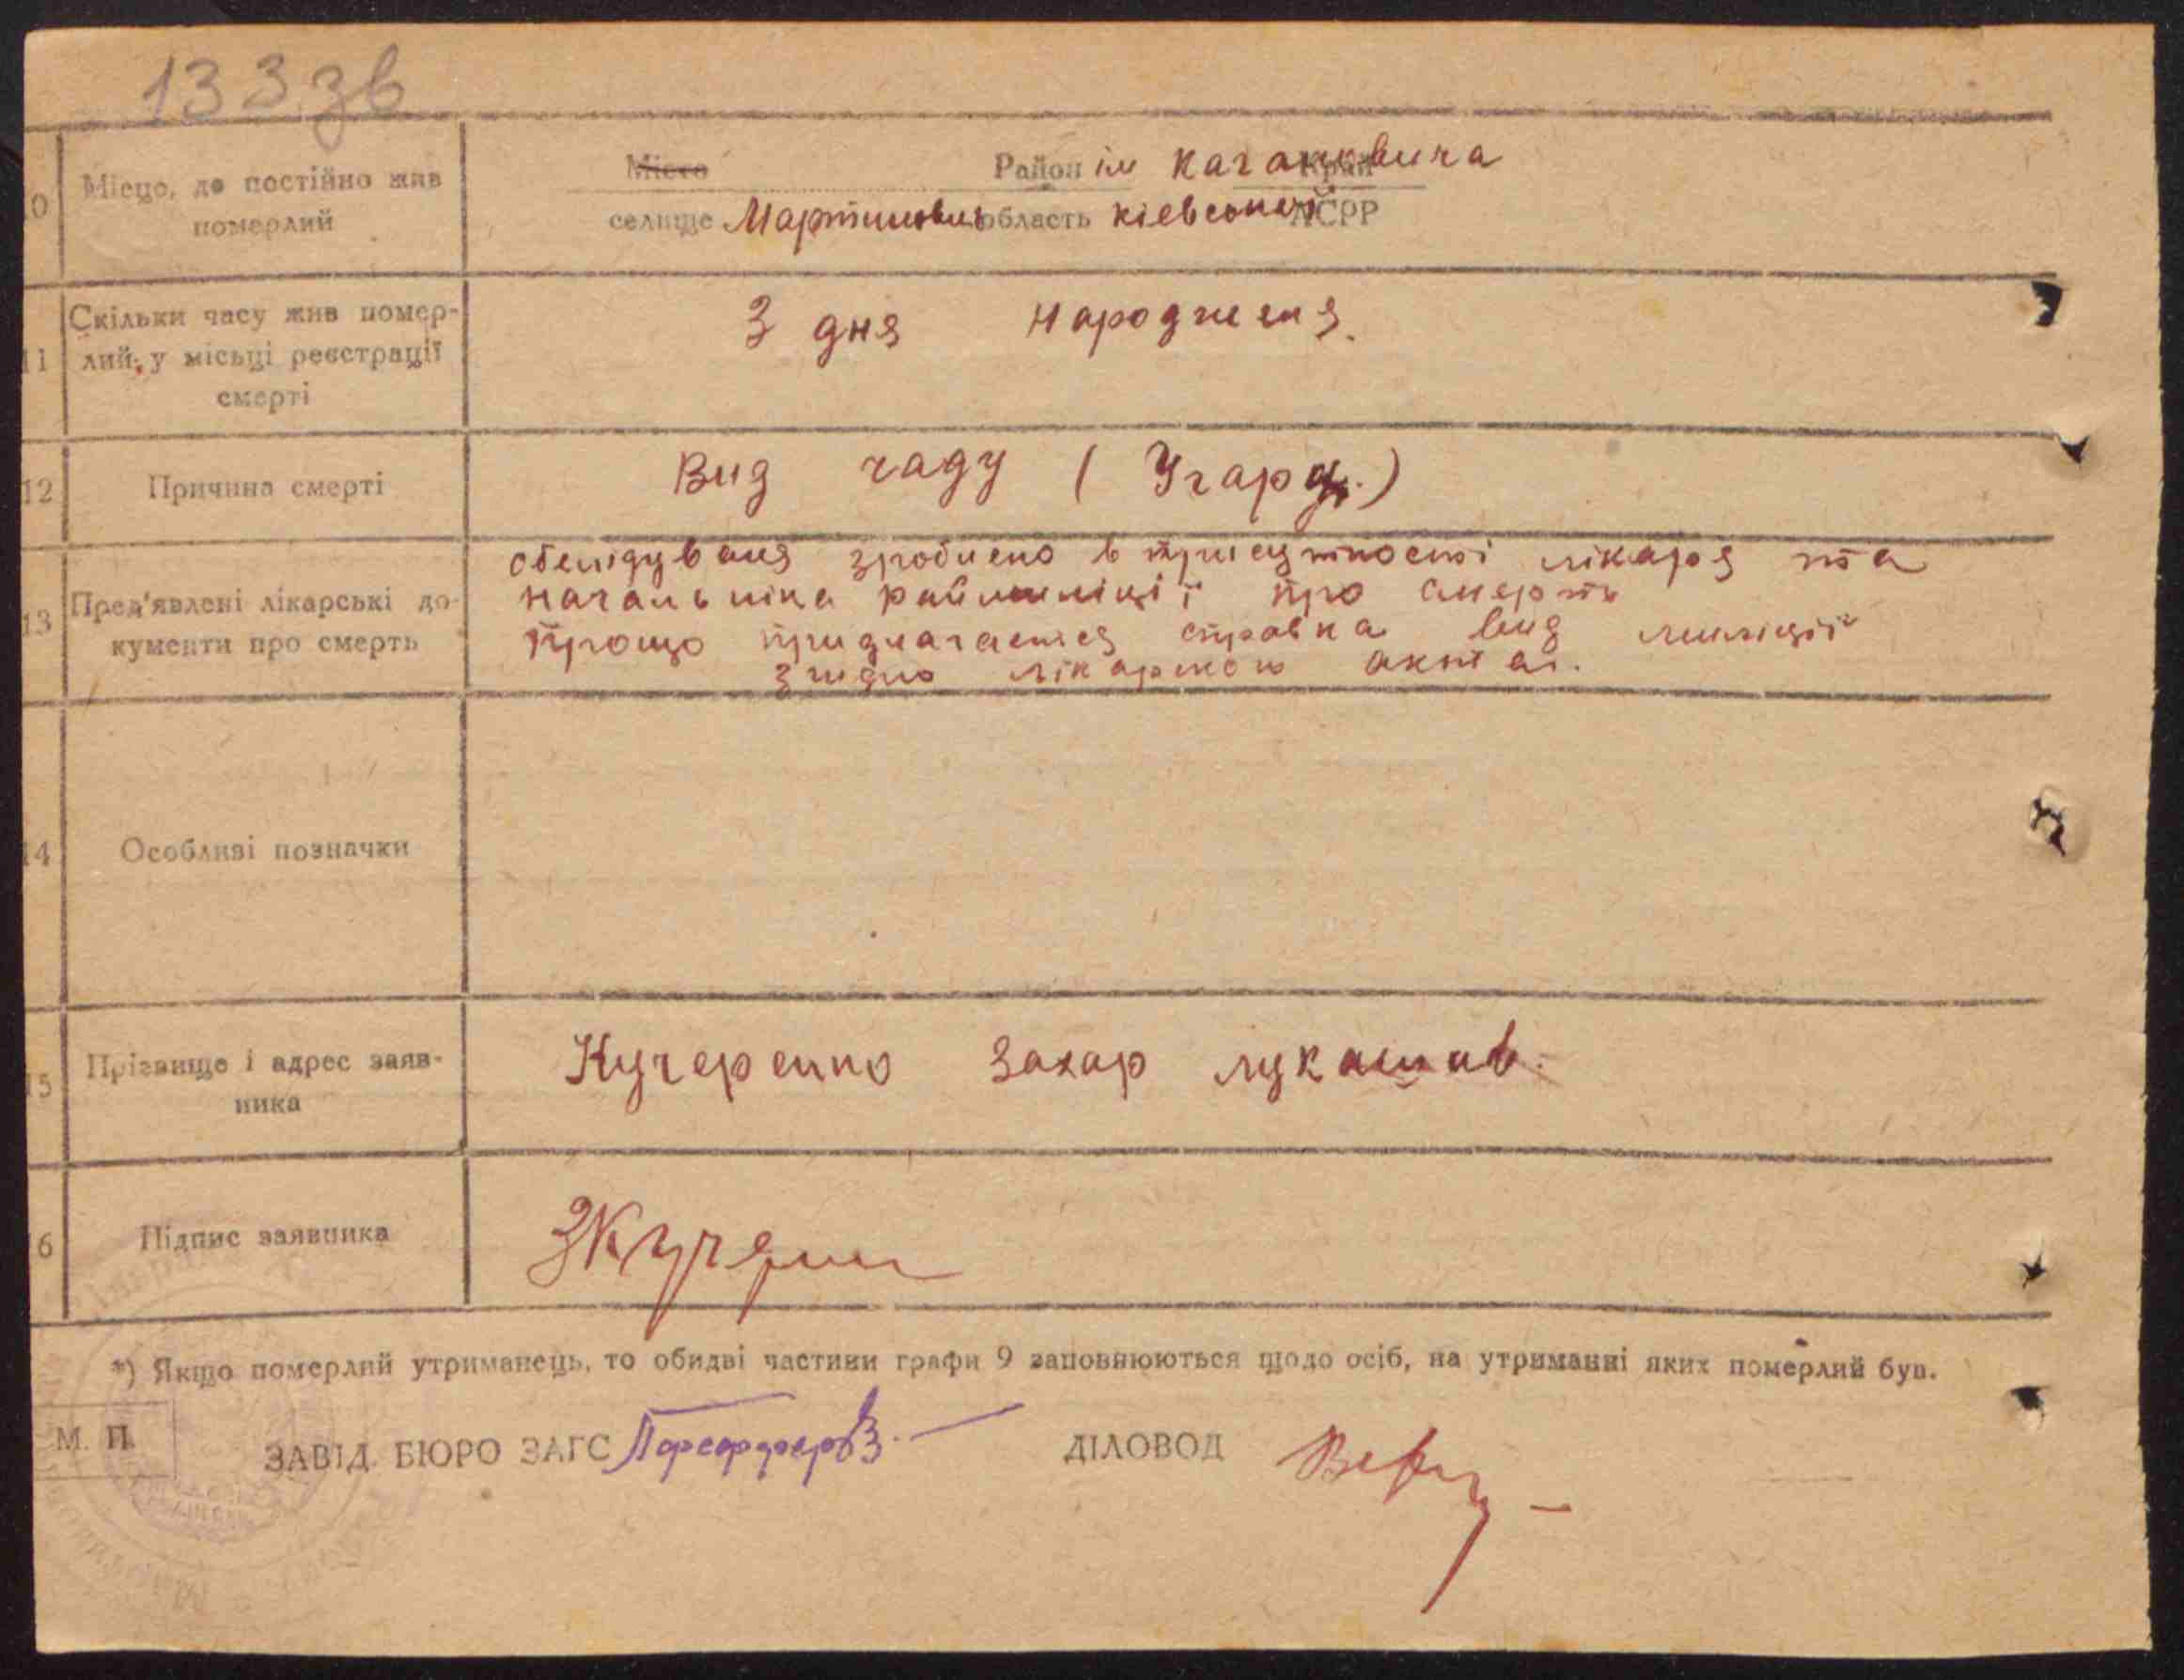 133 зв
10 Місце, де постійно жив померлий
Місто Район ім Кагановича Край
селище Мартиновичі область Кіевської АСРР
11 Скільки часу жив помер-
лий у місьці реєстрації
смерті
З дня народженя.
12 Причина смерті
Вид чаду (Угару.)
обслідуваня зроблено в присутності лікаря та
13 Пред'явлені лікарські до-
кументи про смерть
начальніка райміліції про смерть
прощо придлагається справка вид міліції
згидно лікарского акта.
14 Особливі позначки
15 Прізвище і адрес заяв-
ника
Кучеренко Захар Лукашов.
16 Підпис заявника
ЗКучерен
*) Якщо померлий утриманець, то обидві частини графи 9 заповнюються щодо осіб, на утриманні яких померлий був.
М. П.
ЗАВІД. БЮРО ЗАГС
ДІЛОВОД